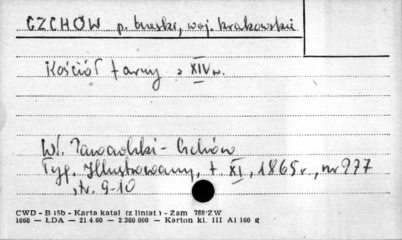 CZCHÓW p. brzeski, woj. krakowskie
Kościół farny z XIV w.
Wł. Zawadzki - Czchów
Tyg. Illustrowany, t. XI, 1865 r., nr 277
, str. 9-10
CWD - B 15b - Karta katal (z liniat) - Zam 788/ZW
1060 - ŁDA - 21.4.60 - 2.360 000 - Karton kl. III A1 160 g